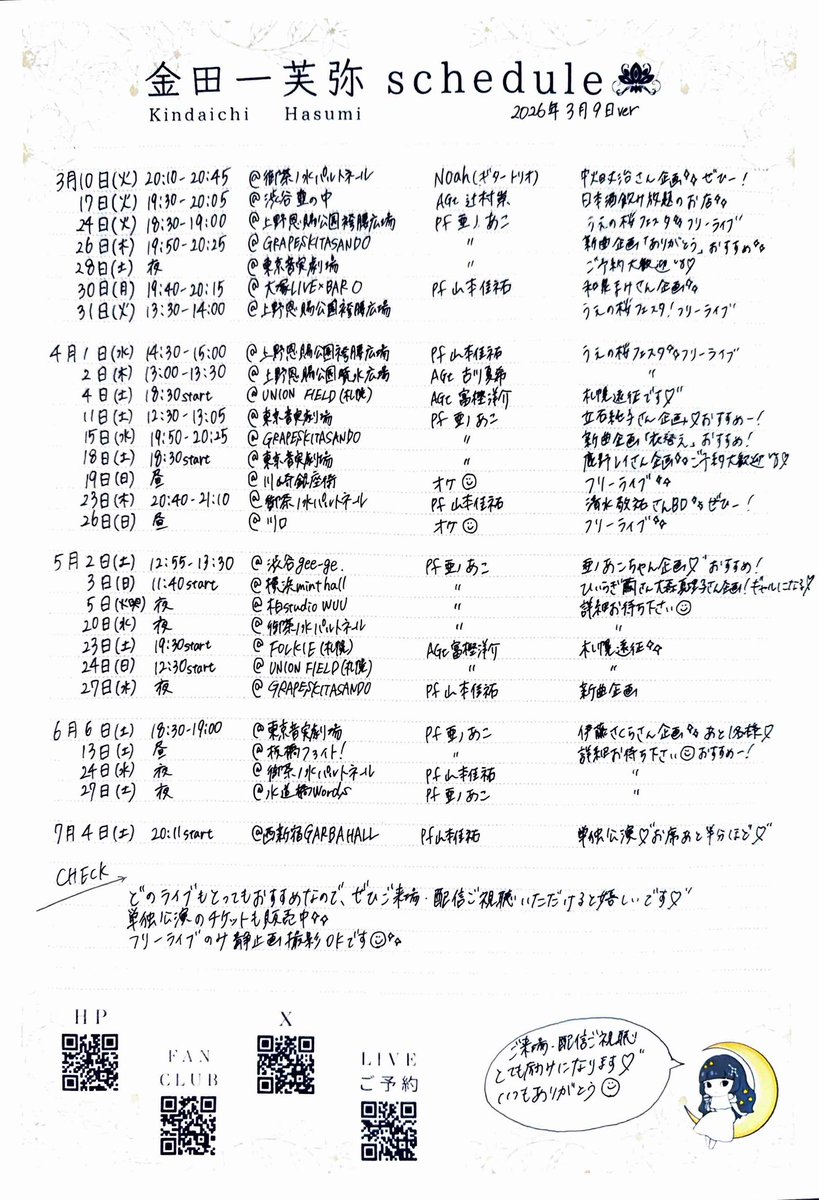 金田一芙弥 schedule
Kindaichi Hasumi
2026年3月9日ver
3月10日(火) 20:10-20:45 @御茶ノ水パルトネール Noah(ギタートリオ) さん企画 ぜひー!
17日(火) 19:30-20:05 @渋谷 の中 AGt 辻村 日本酒飲み放題のお店
24日(火) 18:30-19:00 @上野恩賜公園袴腰広場 Pf 亜ノあこ うえの桜フェスタ フリーライブ
26日(木) 19:50-20:25 @GRAPESKITASANDO 〃 新曲企画「ありがとう」おすすめ
28日(土) 夜 @東京音実劇場 〃 ご予約大歓迎♡
30日(月) 19:40-20:15 @大塚LIVE×BAR O Pf 山本佳祐 さん企画
31日(火) 13:30-14:00 @上野恩賜公園袴腰広場 うえの桜フェスタ!フリーライブ
4月1日(水) 14:30-15:00 @上野恩賜公園袴腰広場 Pf 山本佳祐 うえの桜フェスタ フリーライブ
2日(木) 13:00-13:30 @上野恩賜公園噴水広場 AGt 古川真希 〃
4日(土) 18:30start @UNION FIELD(札幌) AGt 富樫洋介 札幌遠征です♡
11日(土) 12:30-13:05 @東京音実劇場 Pf 亜ノあこ 立石純子さん企画 おすすめー!
15日(水) 19:50-20:25 @GRAPESKITASANDO 〃 新曲企画「衣替え」おすすめ!
18日(土) 18:30start @東京音実劇場 〃 鹿野レイさん企画 ご予約大歓迎♡
19日(日) 昼 @川崎銀座街 オケ☺ フリーライブ
23日(木) 20:40-21:10 @御茶ノ水パルトネール Pf 山本佳祐 清水敬祐さんBD ぜひー!
26日(日) 昼 @川口 オケ☺ フリーライブ
5月2日(土) 12:55-13:30 @渋谷gee-ge. Pf 亜ノあこ 亜ノあこちゃん企画♡ おすすめ!
3日(日) 11:40start @横浜mint hall 〃 ひいらぎ繭さん大森真理子さん企画!ギャルになる♡
5日(火祝) 夜 @柏studio WUU 〃 詳細お待ち下さい☺
20日(水) 夜 @御茶ノ水パルトネール 〃
23日(土) 19:30start @FOLKIE(札幌) AGt 富樫洋介 札幌遠征
24日(日) 12:30start @UNION FIELD(札幌) 〃 〃
27日(水) 夜 @GRAPESKITASANDO Pf 山本佳祐 新曲企画
6月6日(土) 18:30-19:00 @東京音実劇場 Pf 亜ノあこ 伊藤さくらさん企画 あと1名様♡
13日(土) 昼 @板橋ファイト! 〃 詳細お待ち下さい☺おすすめー!
24日(水) 夜 @御茶ノ水パルトネール Pf 山本佳祐 〃
27日(土) 夜 @水道橋Words Pf 亜ノあこ 〃
7月4日(土) 20:11start @西新宿GARBA HALL Pf 山本佳祐 単独公演♡お席あと半分ほど♡
CHECK
どのライブもとってもおすすめなので、ぜひご来場・配信ご視聴いただけると嬉しいです♡
単独公演のチケットも販売中
フリーライブのみ静止画撮影OKです☺
HP
FAN CLUB
X
LIVE ご予約
ご来場・配信ご視聴
とても励みになります♡
いつもありがとう☺